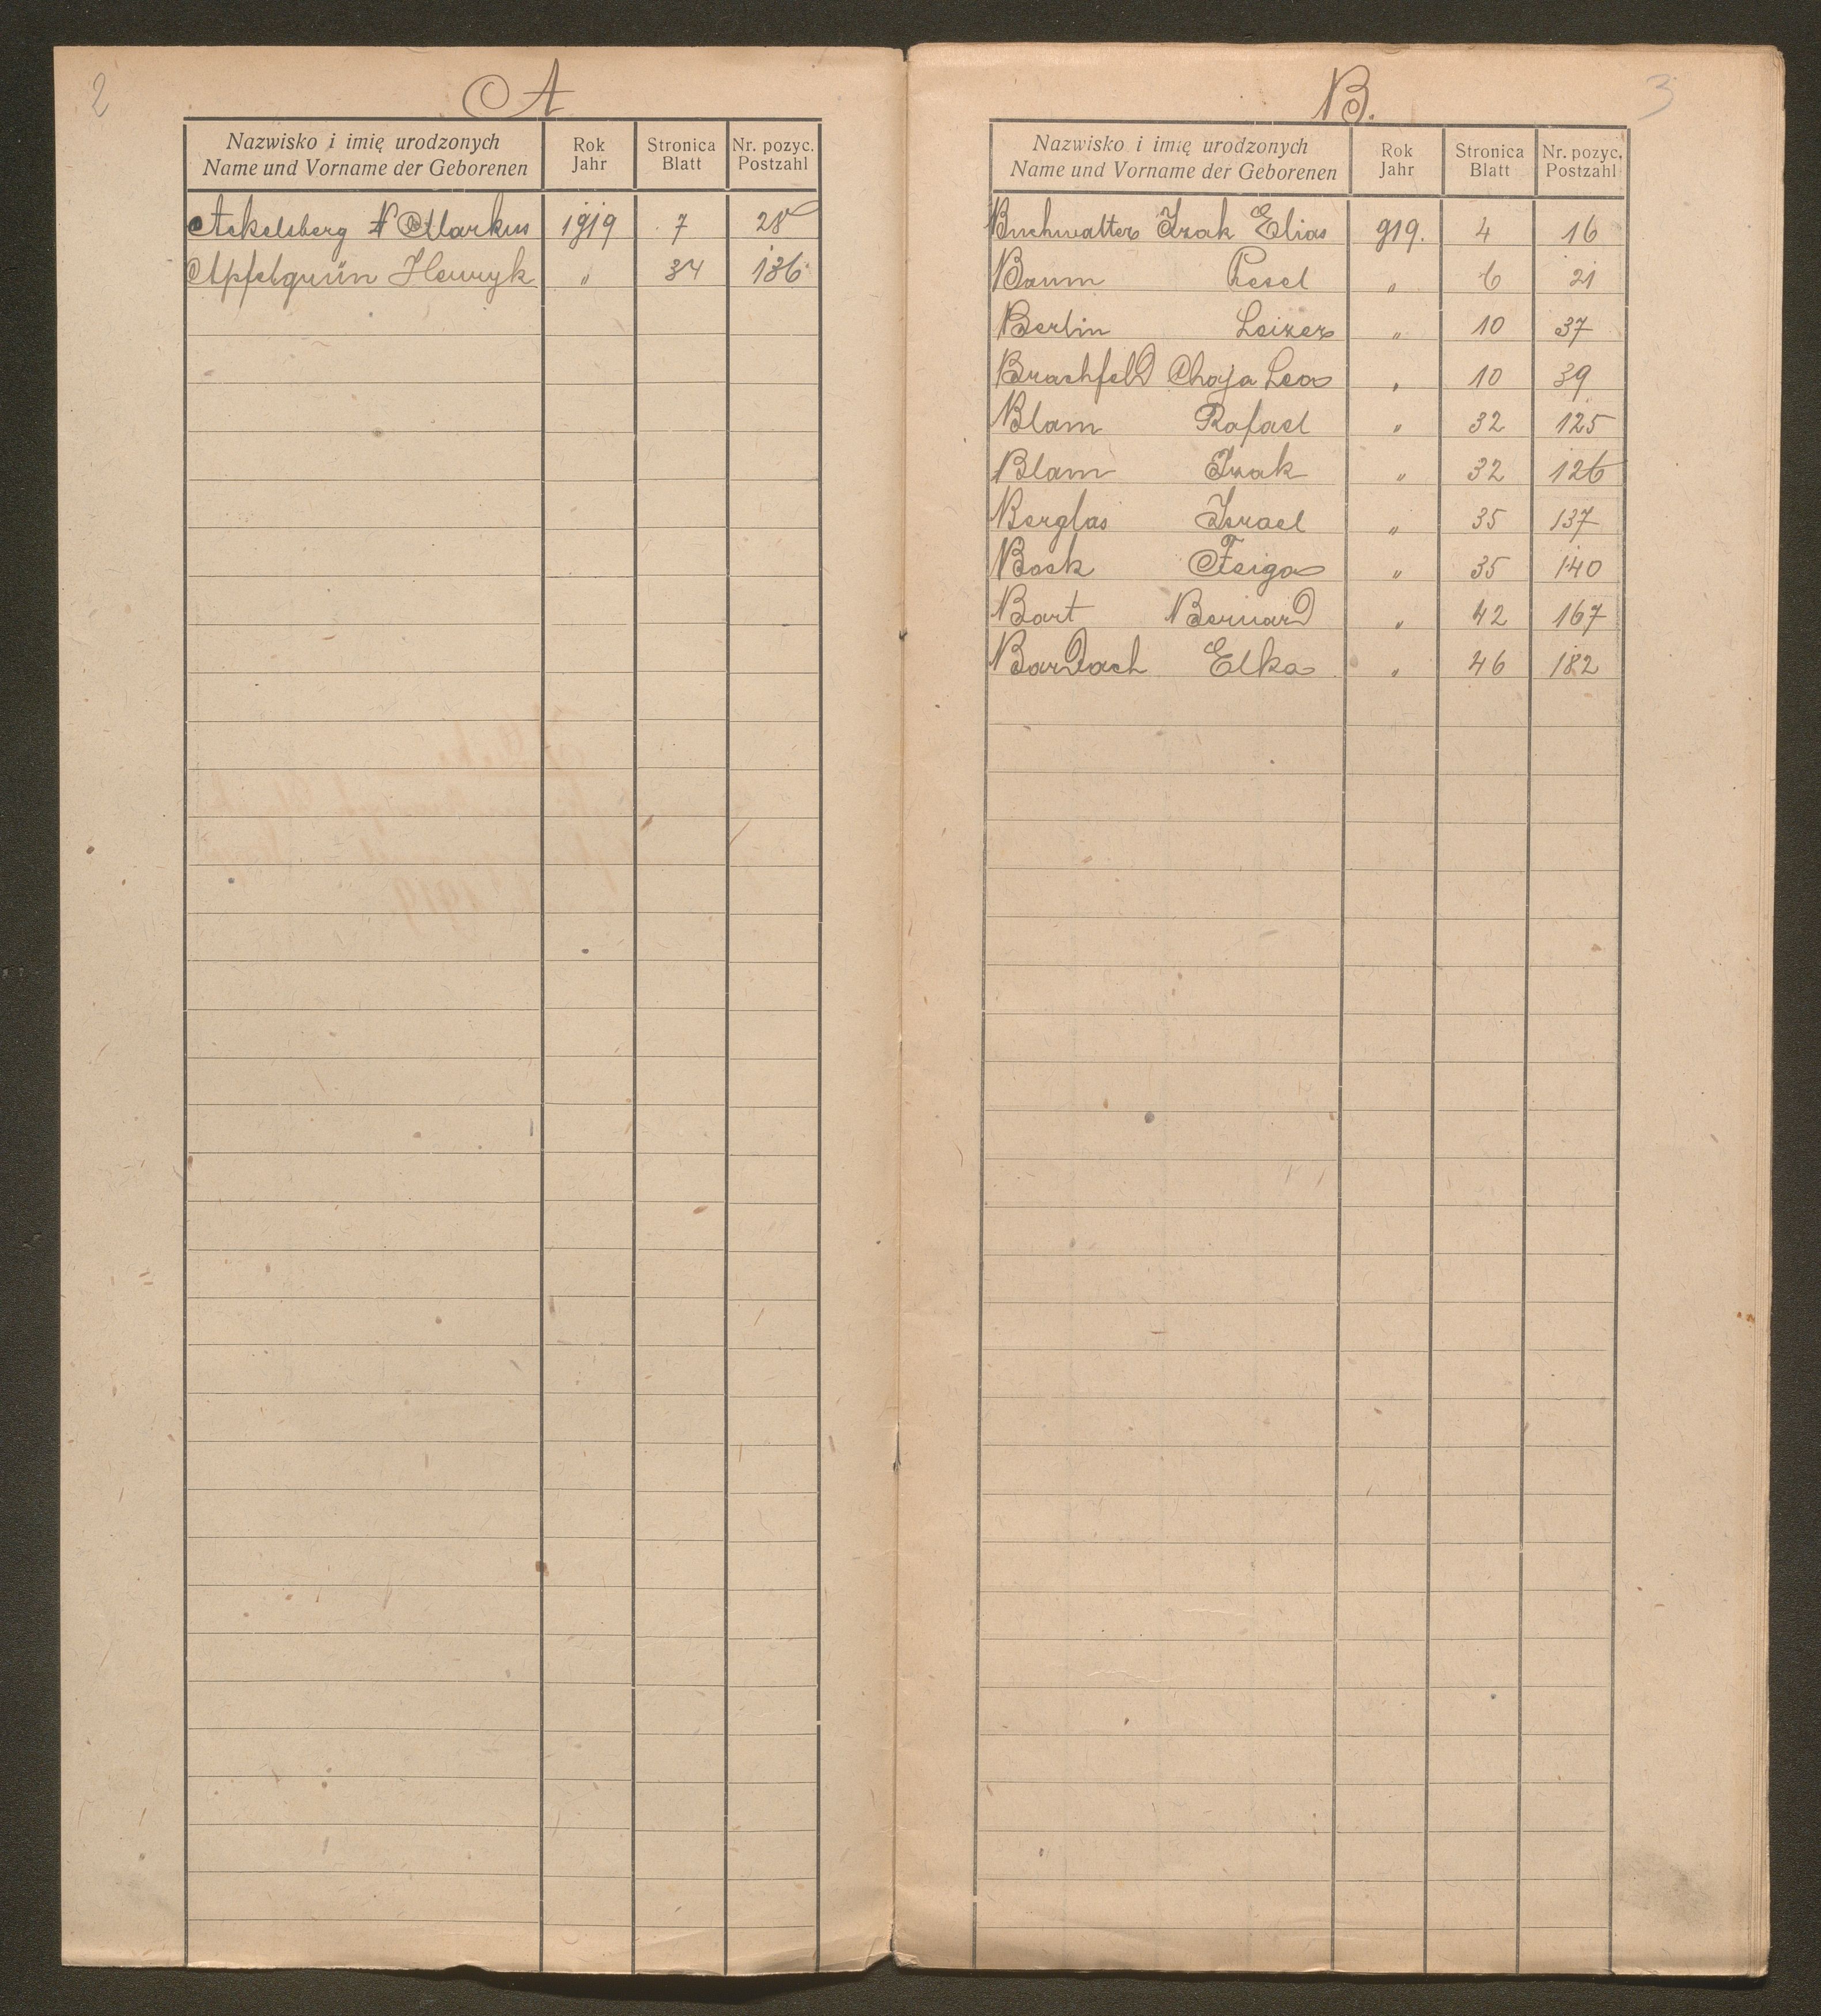 2
A
Nazwisko i imię urodzonych
Name und Vorname der Geborenen
Rok
Jahr
Stronica
Blatt
Nr. pozyc.
Postzahl
Ackelsberg Markus 1919 7 28
Apfelgrün Henryk " 34 136
B.
3
Nazwisko i imię urodzonych
Name und Vorname der Geborenen
Rok
Jahr
Stronica
Blatt
Nr. pozyc.
Postzahl
Buchwalter Izak Elias 919. 4 16
Baum Pesel " 6 21
Berlin Leizer " 10 37
Brachfeld Chaja Lea " 10 39
Blam Rafael " 32 125
Blam Izak " 32 126
Berglas Israel " 35 137
Bock Feiga " 35 140
Bart Bernard " 42 167
Bardach Elka " 46 182